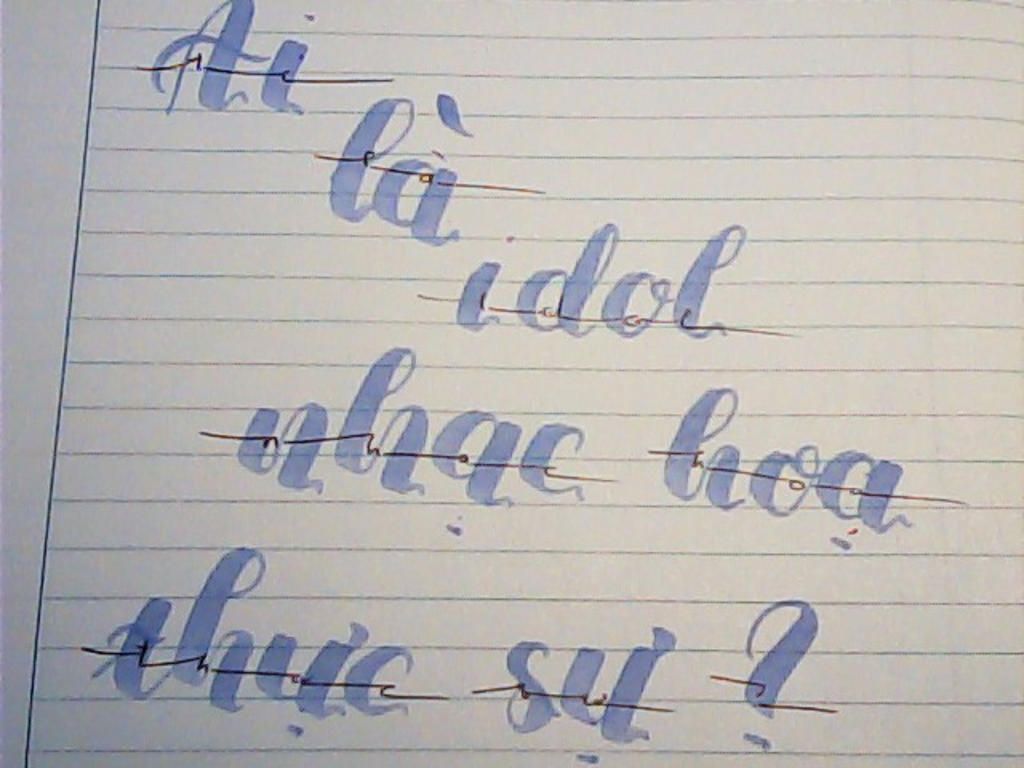 Ai
là
idol
nhạc hoạ
thực sự ?